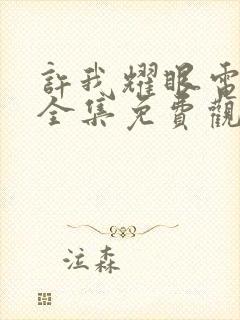 許我耀眼電
全集免費觀
泣森